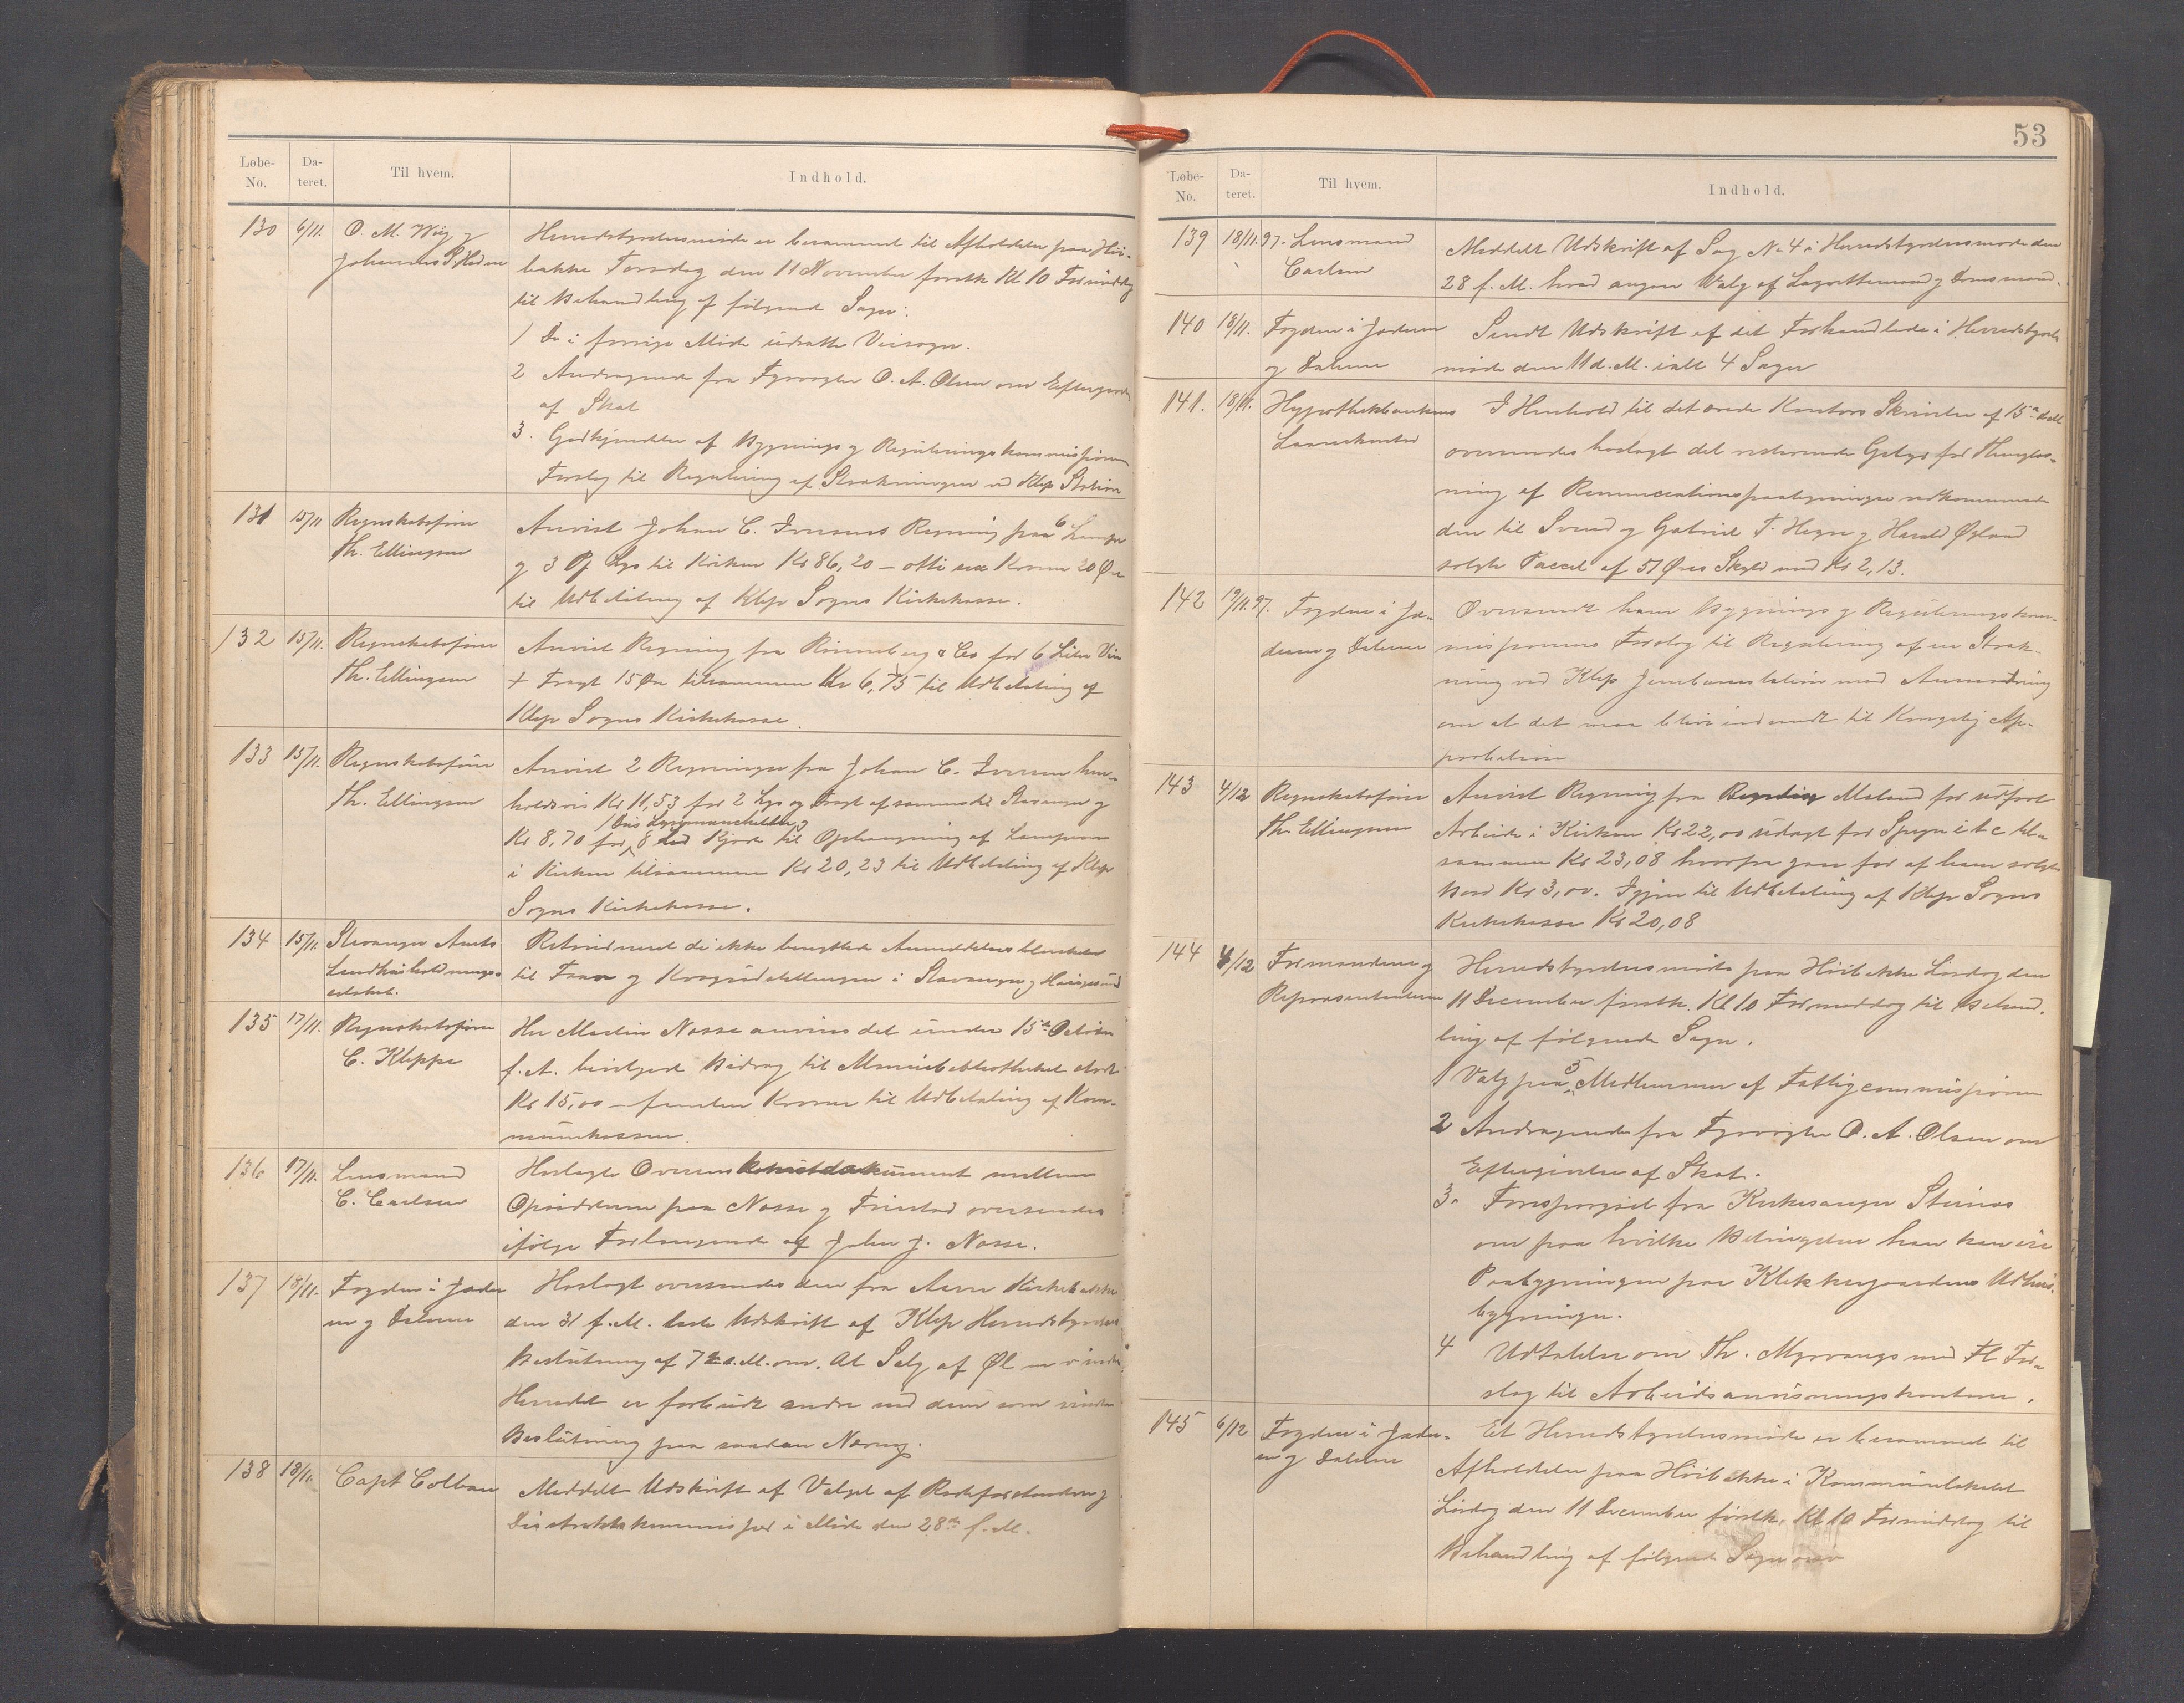 Løbe-No. Da-teret. Til hvem. Indhold.
130 6/11. O. M. Wiig og Johannes P. Hodne
Herredstyrelsesmøde er berammet til Afholdelse paa Høi-
bakke Torsdag den 11 November førstk Kl 10 Formiddag
til Behandling af følgende Sager:
1 De i forrige Møde udsatte Veisager.
2 Andragende fra Fyrvogter O. A. Olsen om Eftergivelse
af Skat
3. Godkjendelse af Bygnings og Reguleringskommissionens
Forslag til Regulering af Strækningen ved Klep Station
131 15/11 Regnskabsfører Th. Ellingsen
Anvist Johan C. Iversens Regning paa 6 Lamper
og 3 Lys til Kirken Kr 86,20 – otti sex Kroner 20 Øre
til Udbetaling af Klep Sogns Kirkekasse.
132 15/11. Regnskabsfører Th. Ellingsen
Anvist Regning fra Rønneberg & Co for 6 Liter Vin
+ Fragt 15 Øre tilsammen Kr 6,75 til Udbetaling af
Klep Sogns Kirkekasse.
133 15/11. Regnskabsfører Th. Ellingsen
Anvist 2 Regninger fra Johan C. Iversen hen-
holdsvis Kr 11,53 for 2 Lys og Fragt af samme til Stavanger og
Kr 8,70 for 8 Kjøde til Ophængning af Lamperne
i Kirken tilsammen Kr 20,23 til Udbetaling af Klep
Sogns Kirkekasse.
134 15/11. Stavanger Amts Landhusholdnings-selskab.
Retourneret de ikke benyttede Anmeldelsesblanketer
til og Kvægudstillingen i Stavanger og Haugesund
135 17/11. Regnskabsfører C. Kleppe
Hr Martin Nosse anvises det under 15de October
f. A. bevilgede Bidrag til Almuebibliotheket
Kr 15,00 – femten Kroner til Udbetaling af Kom-
munekassen.
136 17/11. Lensmand C. Carlsen
Hoslagte Overenskomstdokument mellem
Opsidderne paa Nosse og Friestad oversendes
ifølge Forlangende af John J. Nosse.
137 18/11. Fogden i Jæderen og Dalerne
Hoslagt oversendes den fra Aarre Kirkebakke
den 31 f. M. læste Udskrift af Klep Herredstyrelses
Beslutning af 7 s. M. om, At Salg af Øl
Herredet er forbudt andre end dem som
Beslutning paa saadan Næring.
138 18/11. Capt Colban
Meddelt Udskrift af Valget af Rodeforstandere og
Distriktskommissær i Møde den 28de f. M.
53
Løbe-No. Da-teret. Til hvem. Indhold.
139 18/11.97. Lensmand Carlsen
Meddelt Udskrift af Sag No 4 i Herredstyrelsesmøde den
28 f. M. hvad angaar Valg af Lagrettemænd og Domsmænd.
140 18/11. Fogden i Jæderen og Dalerne
Sendt Udskrift af det Forhandlede i Herredstyrelses
møde den 11 d. M. ialt 4 Sager
141. 18/11. Hypothekbankens Laanekontor
I Henhold til det ærede Kontors Skrivelse af 15de
oversendes hoslagt det resterende Gebyr for Thinglæs-
ning af Renunciationspaategninger vedkommende
den til Svend og Gabriel T. Hegre og Harald Øgland
solgte Parcel af 51 Øres Skyld med Kr 2,13.
142 19/11.97. Fogden i Jæ-deren og Dalerne
Oversendt ham Bygnings og Reguleringskom-
missionens Forslag til Regulering af en Stræk-
ning ved Klep Jernbanestation med Anmodning
om at det maa blive indsendt til Kongelig Ap-
probation
143 4/12 Regnskabsfører Th. Ellingsen
Anvist Regning fra Mæland for udført
Arbeide i Kirken Kr 22,00 udlagt for Spiger etc til-
sammen Kr 23,08 hvorfra gaar for af ham solgte
Bord Kr 3,00. Igjen til Udbetaling af Klep Sogns
Kirkekasse Kr 20,08
144 4/12 Formændene og Repræsentanterne
Herredstyrelsesmøde paa Høibakke Lørdag den
11 December førstk. Kl 10 Formiddag til Behand-
ling af følgende Sager.
1 Valg paa 3 Medlemmer af Fattigcommissionen
2 Andragende fra Fyrvogter O. A. Olsen om
Eftergivelse af Skat.
3. Forespørgsel fra Kirkesanger Steinnes
om paa hvilke Betingelser han kan
Paabygningen paa Klokkergaardens Udhus-
bygninger.
4 Udtalelse om Th. Myrvangs med Fl For-
slag til Arbeidsanvisningskontorer.
145 6/12 Fogden i Jæder-en og Dalerne
Et Herredstyrelsesmøde er berammet til
Afholdelse paa Høibakke i Kommunelokalet
Lørdag den 11 December førstk. Kl 10 Formiddag til
Behandling af følgende Sager